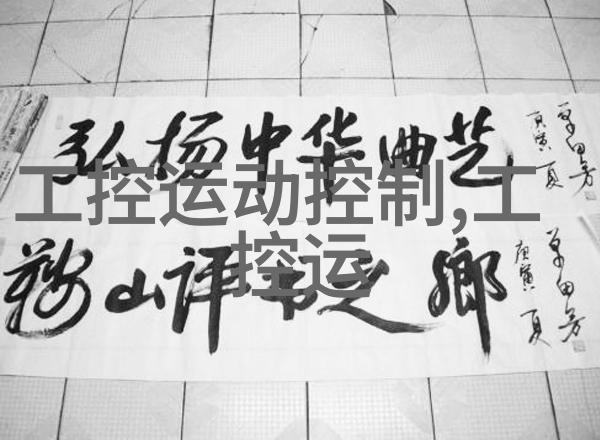 弘扬中华曲艺
单田芳
庚寅 夏
工控运动控制,工
控运
鞍山评书之鄉
单田芳
庚寅 夏